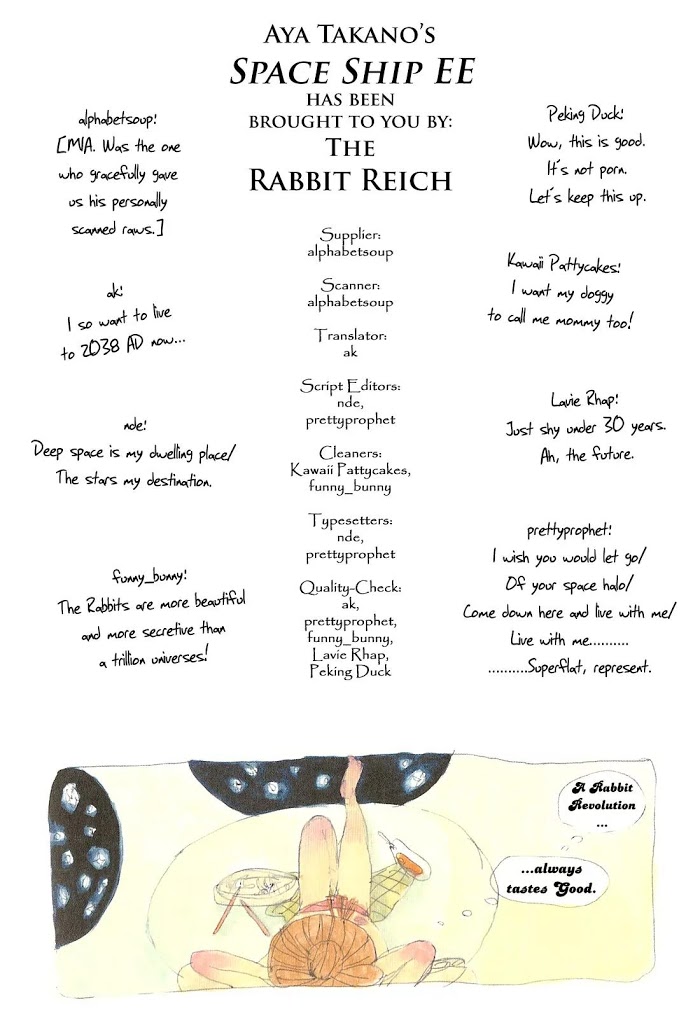 Aya Takano's
Space Ship EE
has been
brought to you by:
The
Rabbit Reich
alphabetsoup!
[M/A. Was the one
who gracefully gave
us his personally
scanned raws.]
ak!
I so want to live
to 2038 AD now...
nde!
Deep space is my dwelling place/
The stars my destination.
funny_bunny!
The Rabbits are more beautiful
and more secretive than
a trillion universes!
Supplier:
alphabetsoup
Scanner:
alphabetsoup
Translator:
ak
Script Editors:
nde,
prettyprophet
Cleaners:
Kawaii Pattycakes,
funny_bunny
Typesetters:
nde,
prettyprophet
Quality-Check:
ak,
prettyprophet,
funny_bunny,
Lavie Rhap,
Peking Duck
Peking Duck!
Wow, this is good.
It's not porn.
Let's keep this up.
Kawaii Pattycakes!
I want my doggy
to call me mommy too!
Lavie Rhap!
Just shy under 30 years.
Ah, the future.
prettyprophet!
I wish you would let go/
Of your space halo/
Come down here and live with me/
Live with me..........
..........Superflat, represent.
A Rabbit
Revolution
...
...always
tastes Good.